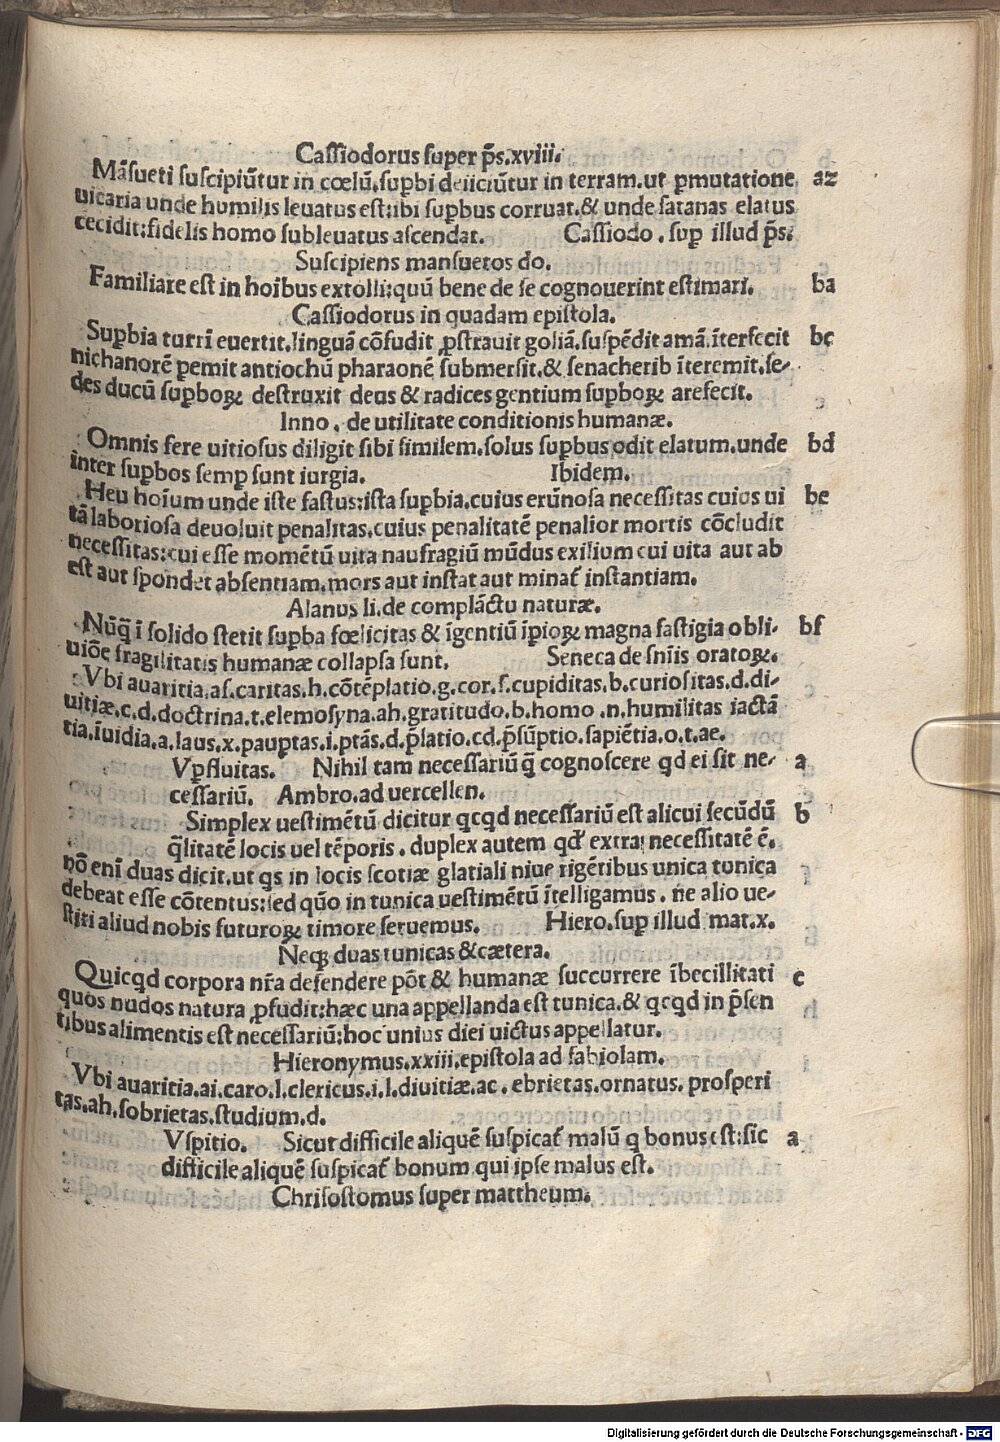 Cassiodorus super p̄s.xviii.
Mãsueti suscipiũtur in cœlũ.supbi deiiciũtur in terram.ut pmutatione az
uicaria unde humilis leuatus est:ibi supbus corruat.& unde satanas elatus
cecidit:fidelis homo subleuatus ascendat. Cassiodo . sup illud p̄s.
Suscipiens mansuetos do.
Familiare est in hoibus extolli:quũ bene de se cognouerint estimari. ba
Cassiodorus in quadam epistola.
Supbia turrĩ euertit.linguã cõfudit ꝓstrauit goliã.suspẽdit amã.ĩterfecit bc
nichanorẽ pemit antiochũ pharaonẽ submersit.& senacherib ĩteremit.se-
des ducũ supboꝝ destruxit deus & radices gentium supboꝝ arefecit.
Inno . de utilitate conditionis humanæ.
Omnis fere uitiosus diligit sibi similem.solus supbus odit elatum.unde bd
inter supbos semp sunt iurgia. Ibidem.
Heu hoĩum unde iste fastus:ista supbia.cuius erũnosa necessitas cuius ui be
tã laboriosa deuoluit penalitas.cuius penalitatẽ penalior mortis cõcludit
necessitas:cui esse momẽtũ uita naufragiũ mũdus exilium cui uita aut ab
est aut spondet absentiam.mors aut instat aut minat̃ instantiam.
Alanus li.de complãctu naturæ.
Nũq̃ ĩ solido stetit supba fœlicitas & ĩgentiũ ĩpioꝝ magna fastigia obli- bf
uiõe fragilitatis humanæ collapsa sunt. Seneca de sñiis oratoꝝ.
Vbi auaritia.af.caritas.h.cõtẽplatio.g.cor.f.cupiditas.b.curiositas.d.di-
uitiæ.c.d.doctrina.t.elemosyna.ah.gratitudo.b.homo .n.humilitas iactã
tia.ĩuidia.a.laus.x.pauptas.i.ptãs.d.p̃latio.cd.p̃sũptio.sapiẽtia.o.t.ae.
Vpfluitas. Nihil tam necessariũ q̃ cognoscere qd ei sit ne- a
cessariũ. Ambro.ad uercellen.
Simplex uestimẽtũ dicitur qcqd necessariũ est alicui secũdũ b
q̃litatẽ locis uel tẽporis . duplex autem qd̕ extra necessitatẽ ẽ.
nõ enĩ duas dicit.ut qs in locis scotiæ glatiali niue rigẽtibus unica tunica
debeat esse cõtentus:sed qũo in tunica uestimẽtũ ĩtelligamus . ne alio ue-
stiti aliud nobis futuroꝝ timore seruemus. Hiero.sup illud mat.x.
Neqꝫ duas tunicas &cætera.
Quicqd corpora nr̃a defendere põt & humanæ succurrere ĩbecillitati c
quos nudos natura ꝓfudit:hæc una appellanda est tunica.& qcqd in p̃sen
tibus alimentis est necessariũ:hoc unius diei uictus appellatur.
Hieronymus.xxiii.epistola ad fabiolam.
Vbi auaritia.ai.caro.l.clericus.i.l.diuitiæ.ac . ebrietas.ornatus. prosperi
tas.ah.sobrietas.studium.d.
Vspitio. Sicut difficile aliquẽ suspicat̃ malũ q bonus est:sic a
difficile aliquẽ suspicat̃ bonum qui ipse malus est.
Chrisostomus super mattheum.
Digitalisierung gefördert durch die Deutsche Forschungsgemeinschaft - DFG